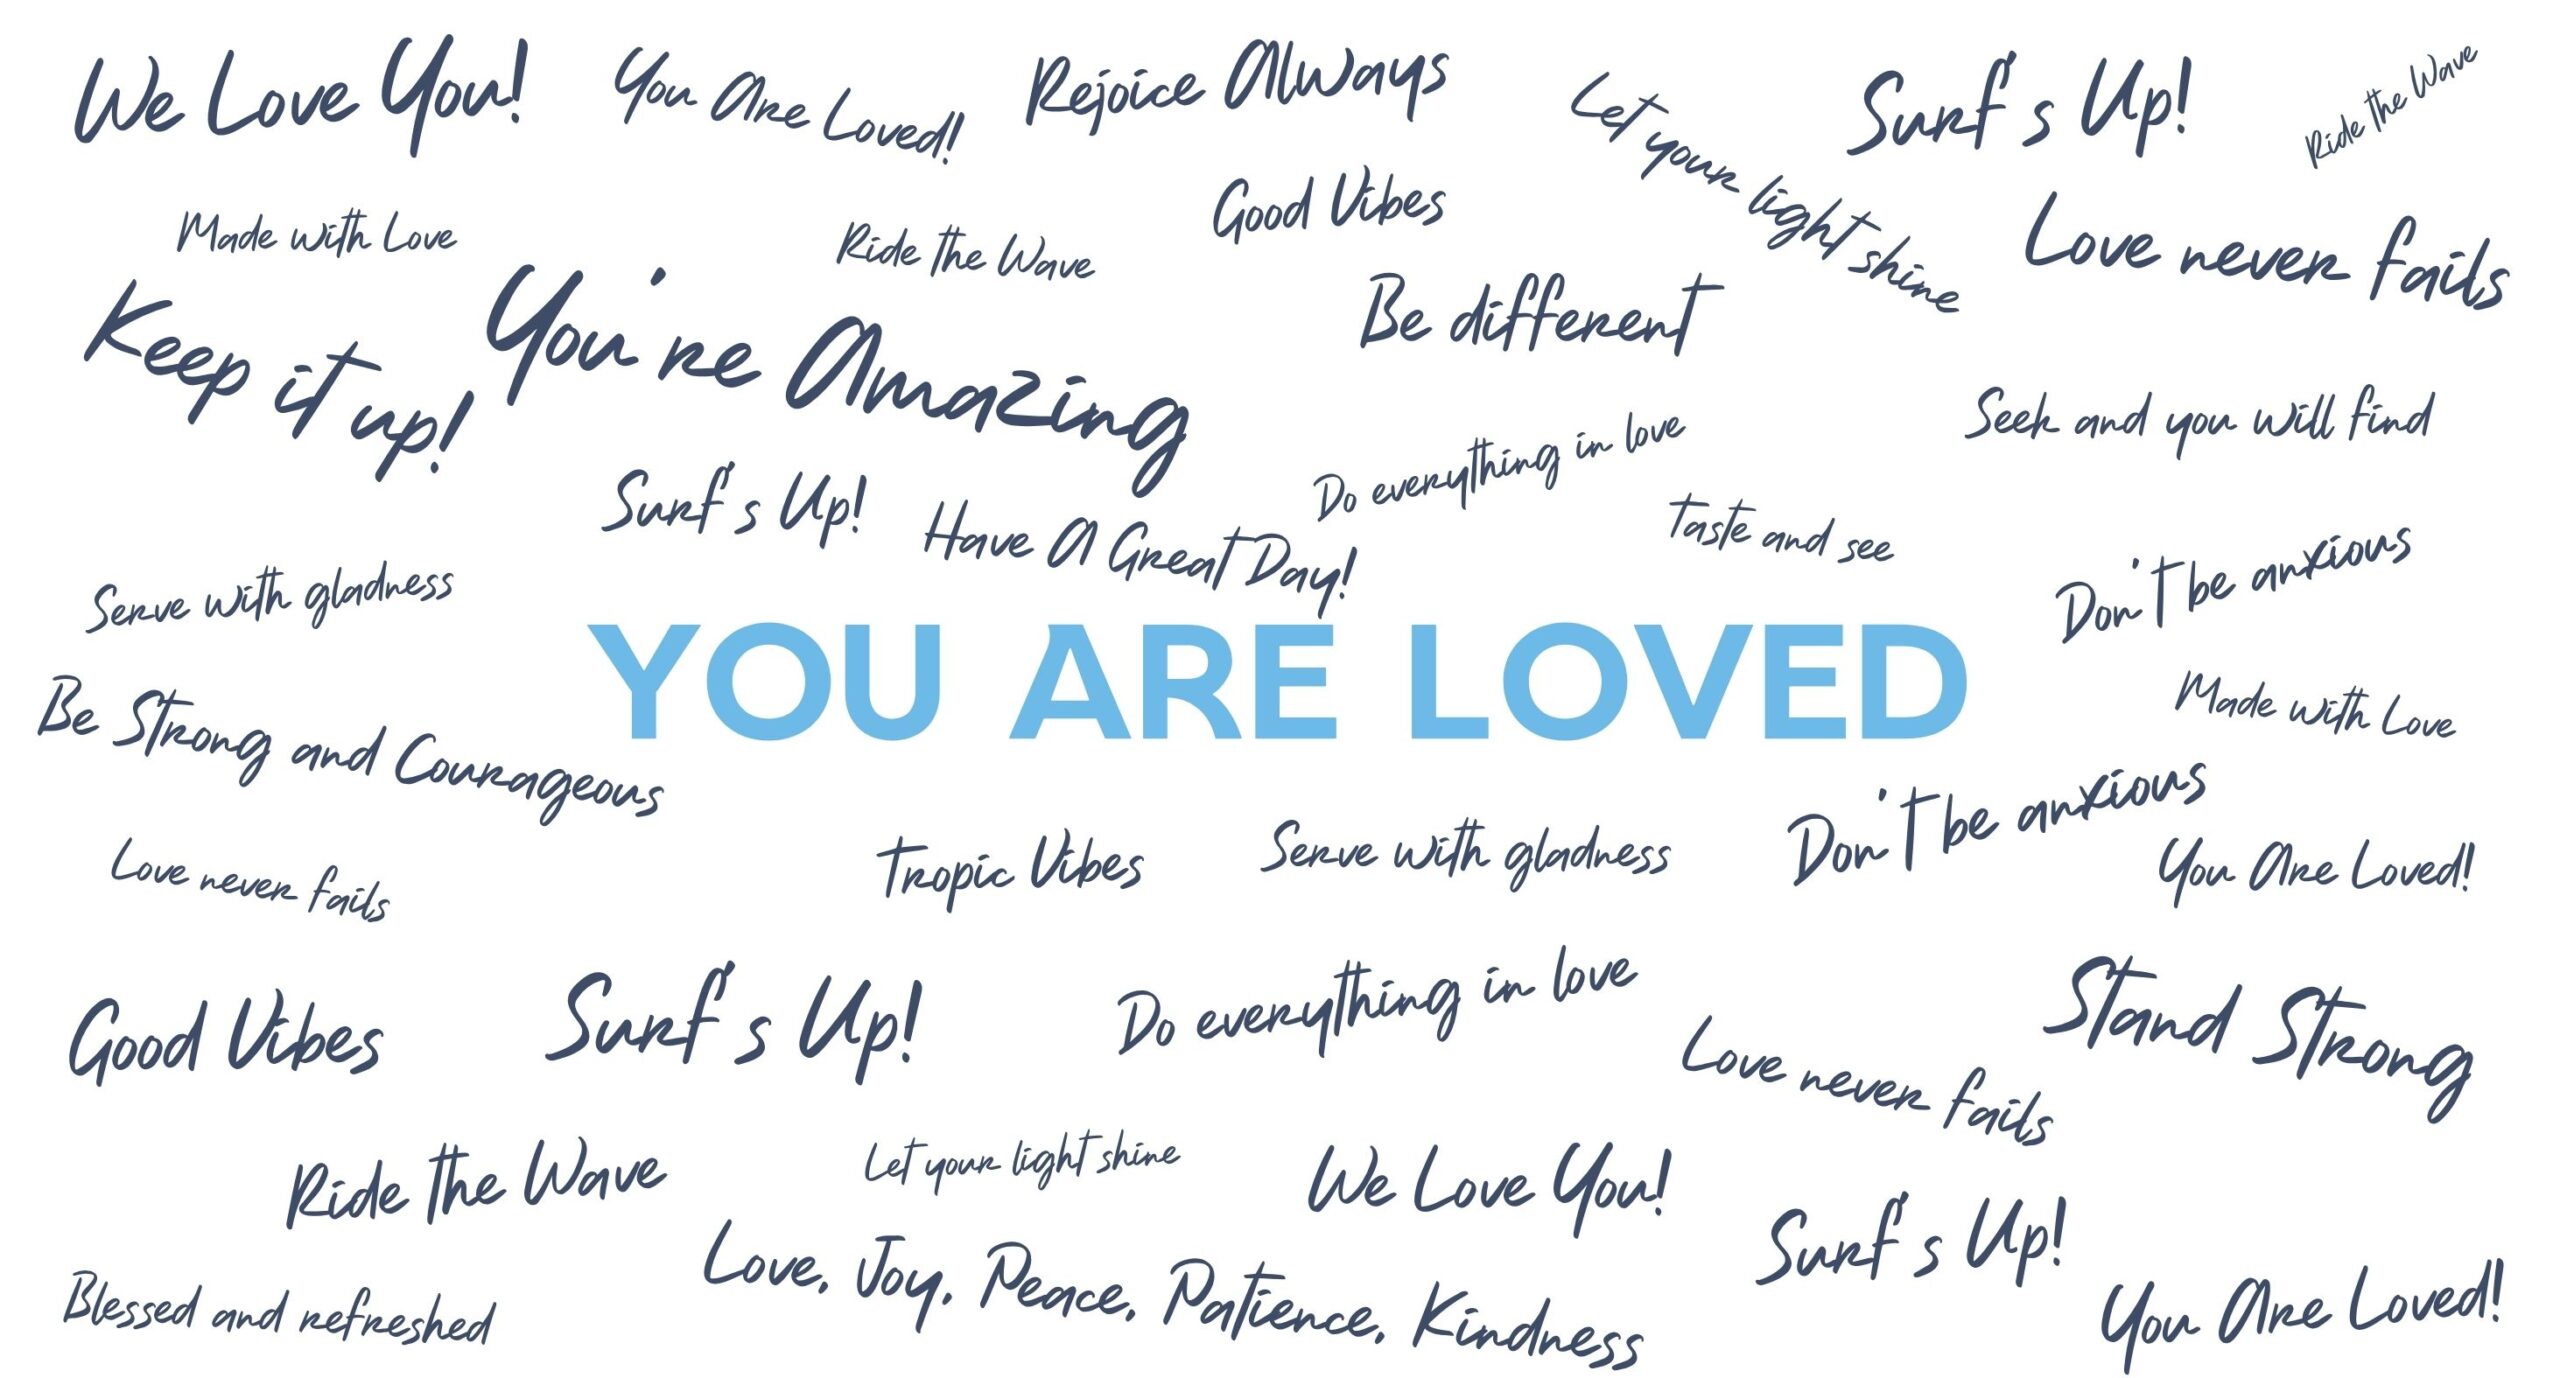 We Love You!
You Are Loved!
Rejoice Always
Let your light shine
Surf's Up!
Ride the Wave
Made with Love
Ride the Wave
Good Vibes
Love never fails
Keep it up!
You're Amazing
Be different
Seek and you will find
Surf's Up!
Have A Great Day!
Do everything in love
Taste and see
Don't be anxious
Serve with gladness
YOU ARE LOVED
Be Strong and Courageous
Made with Love
Love never fails
Tropic Vibes
Serve with gladness
Don't be anxious
You Are Loved!
Good Vibes
Surf's Up!
Do everything in love
Love never fails
Stand Strong
Ride the Wave
Let your light shine
We Love You!
Surf's Up!
Blessed and refreshed
Love, Joy, Peace, Patience, Kindness
You Are Loved!